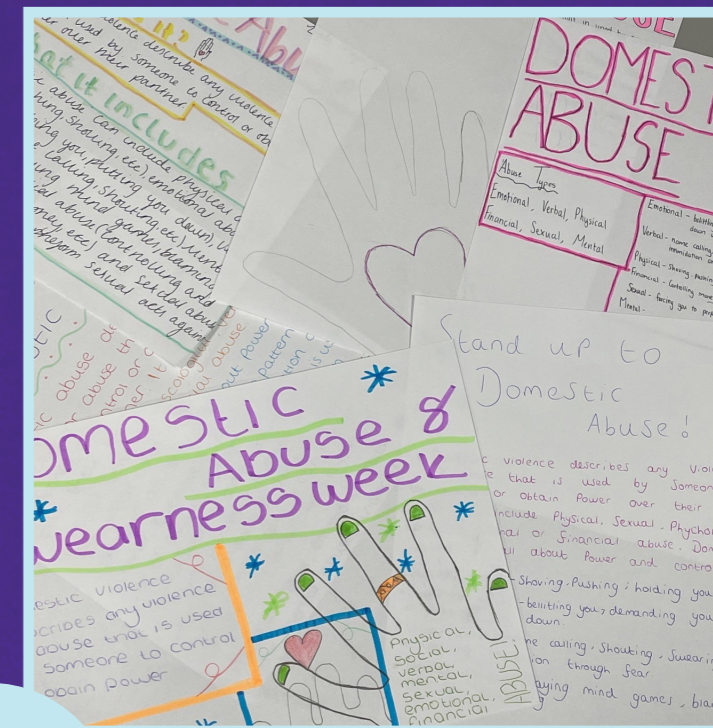 it?
Abu
violence describe any violence
used by someone to control or ob
er over their partner.
hat it includes
abuse can include physical
shouting, etc), emotional abu
ing you, putting you down), v
calling, shouting, etc), ment
mind games, blaming
abuse (controlling and
money, etc) and sexual abus
sexual acts again
DOMEST
ABUSE
Abuse Types
Emotional, Verbal, Physical
Financial, Sexual, Mental
Emotional - belittlin
down
Verbal - name calling
intimidation
Physical - Shoving pushin
Financial - Controlling mone
Sexual - forcing you to
Mental -
STIC
ic abuse
abuse th
ntrol or
abuse
out Power
pattern
Stand up to
Domestic
Abuse!
c violence describes any viol
e that is used by Someon
or obtain Power over their
include Physical, Sexual, Phychol
nal or financial abuse. Dom
all about Power and contro
- Shoving, Pushing, holding you
- bellitling you, demanding you
down.
me calling, shouting, Swearin
ion through fear
aying mind games, blam
omestic
Abuse &
wearness week
estic violence
scribes any violence
abuse that is used
someone to control
obain power
Physical,
social,
verbal,
mental,
sexual,
emotional,
financial
ABUSE!